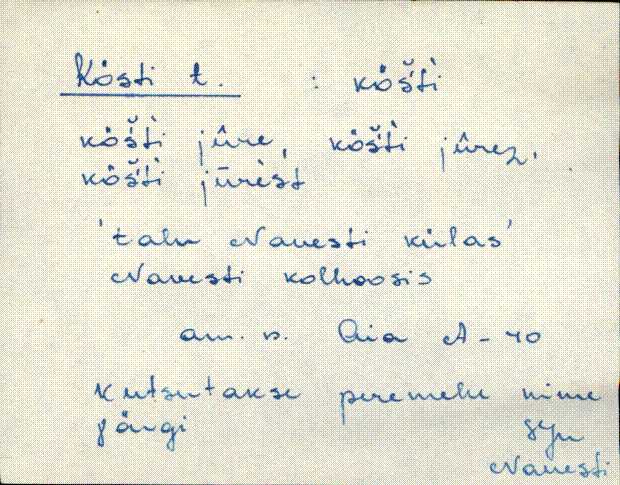 Kösti t. : köšti
köšti jûre, köšti jûrez,
köšti jūrèst
'talu Navesti külas'
Navesti kolhoosis
am. v. Aia A-40
Kutsutakse peremehe nime
järgi syn
Navesti